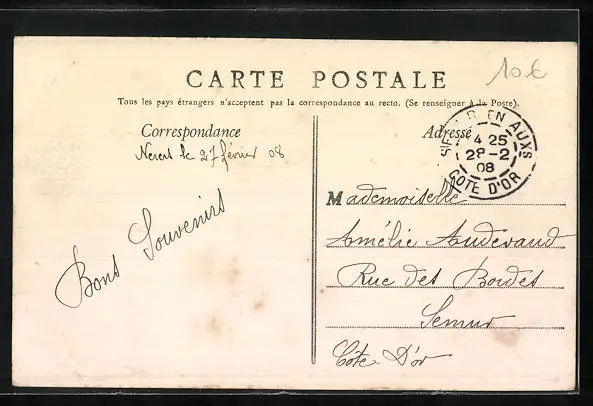 10 €
CARTE POSTALE
Tous les pays étrangers n'acceptent pas la correspondance au recto. (Se renseigner à la Poste).
Correspondance
le 27 février 08
Bons Souvenirs
Adressé
EN AUXS
4 25
28-2
08
COTE D'OR
Mademoiselle
Amélie Audevaud
Rue des Bordes
Semur
Côte D'or